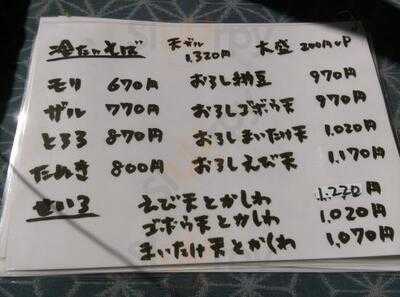 冷たいそば 天ザル 1,320円 大盛 200円UP
モリ 670円 おろし納豆 970円
ザル 770円 おろしゴボウ天 970円
とろろ 870円 おろしまいたけ天 1,020円
たぬき 800円 おろしえび天 1,170円
せいろ えび天とかしわ 1,220円
ゴボウ天とかしわ 1,020円
まいたけ天とかしわ 1,070円